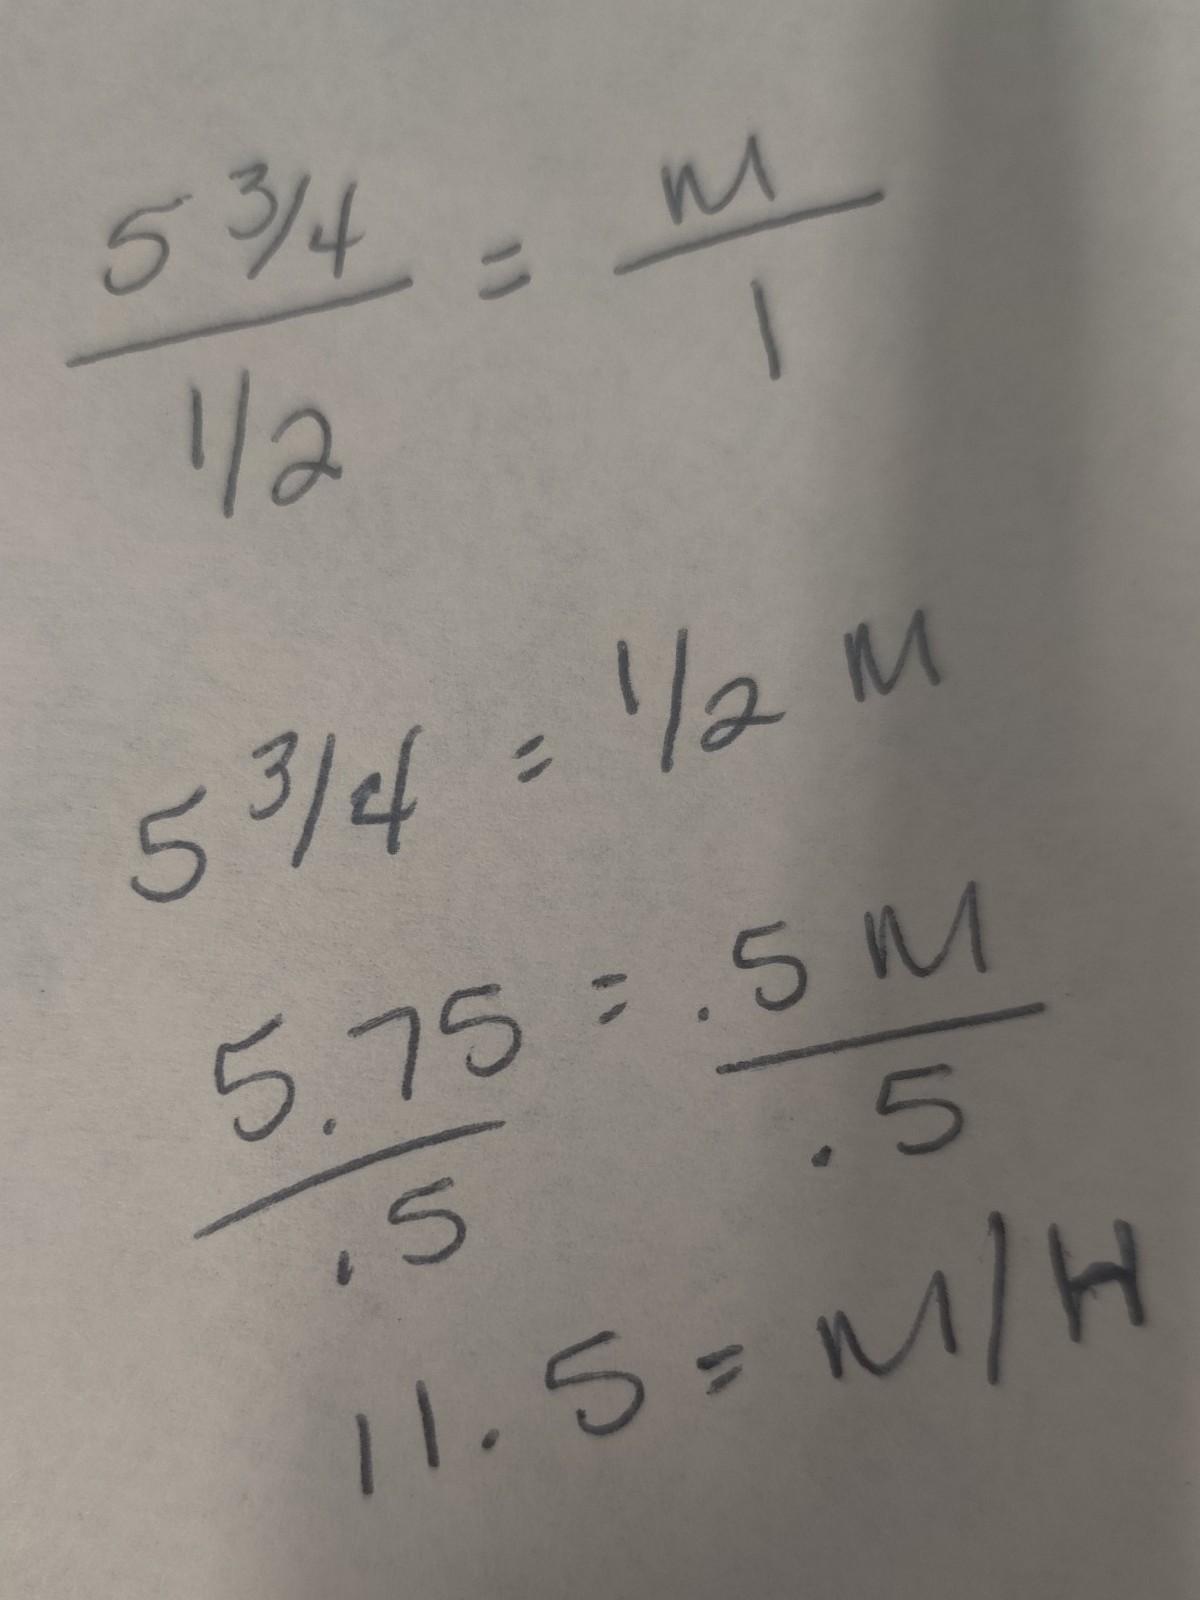 5 3/4 = M
1/2 1
5 3/4 = 1/2 M
5.75 = .5 M
.5 .5
11.5 = M/H